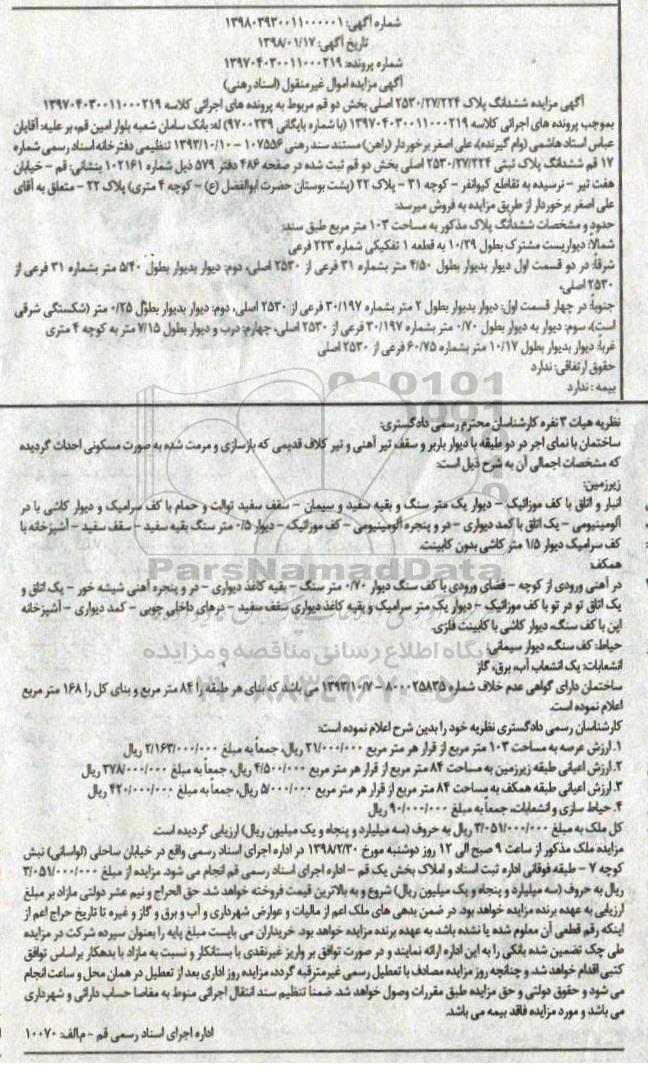 شماره آگهی: ۱۳۹۸۰۳۹۳۰۰۱۱۰۰۰۰۰۱
تاریخ آگهی: ۱۳۹۸/۰۱/۱۷
شماره پرونده: ۱۳۹۷۰۴۰۳۰۰۱۱۰۰۰۲۱۹
آگهی مزایده اموال غیرمنقول (اسناد رهنی)
آگهی مزایده ششدانگ پلاک ۲۵۳۰/۲۷/۲۲۴ اصلی بخش دو قم مربوط به پرونده های اجرائی کلاسه ۱۳۹۷۰۴۰۳۰۰۱۱۰۰۰۲۱۹
بموجب پرونده های اجرائی کلاسه ۱۳۹۷۰۴۰۳۰۰۱۱۰۰۰۲۱۹ (با شماره بایگانی ۹۷۰۰۲۳۹) له: بانک سامان شعبه بلوار امین قم، بر علیه: آقایان
عباس استاد هاشمی (وام گیرنده)، علی اصغر برخوردار (راهن) مستند سند رهنی ۱۰۷۵۵۶ - ۱۳۹۳/۱۰/۱۰ تنظیمی دفترخانه اسناد رسمی شماره
۱۷ قم ششدانگ پلاک ثبتی ۲۵۳۰/۲۷/۲۲۴ اصلی بخش دو قم ثبت شده در صفحه ۴۸۶ دفتر ۵۷۹ ذیل شماره ۱۰۲۱۶۱ بنشانی: قم - خیابان
هفت تیر - نرسیده به تقاطع کیوانفر - کوچه ۳۱ - پلاک ۲۲ (پشت بوستان حضرت ابوالفضل (ع) - کوچه ۴ متری) پلاک ۲۲ - متعلق به آقای
علی اصغر برخوردار از طریق مزایده به فروش میرسد:
حدود و مشخصات ششدانگ پلاک مذکور به مساحت ۱۰۳ متر مربع طبق سند:
شمالاً: دیواریست مشترک بطول ۱۰/۲۹ به قطعه ۱ تفکیکی شماره ۲۲۳ فرعی
شرقاً: در دو قسمت اول دیوار بدیوار بطول ۴/۵۰ متر بشماره ۳۱ فرعی از ۲۵۳۰ اصلی، دوم: دیوار بدیوار بطول ۵/۴۰ متر بشماره ۳۱ فرعی از
۲۵۳۰ اصلی،
جنوباً: در چهار قسمت اول: دیوار بدیوار بطول ۲ متر بشماره ۳۰/۱۹۷ فرعی از ۲۵۳۰ اصلی، دوم: دیوار بدیوار بطول ۰/۲۵ متر (شکستگی شرقی
است)، سوم: دیوار به دیوار بطول ۰/۷۰ متر بشماره ۳۰/۱۹۷ فرعی از ۲۵۳۰ اصلی، چهارم: درب و دیوار بطول ۷/۱۵ متر به کوچه ۴ متری
غرباً: دیوار بدیوار بطول ۱۰/۱۷ متر بشماره ۶۰/۷۵ فرعی از ۲۵۳۰ اصلی
حقوق ارتفاقی: ندارد
بیمه: ندارد
نظریه هیات ۳ نفره کارشناسان محترم رسمی دادگستری:
ساختمان با نمای اجر در دو طبقه با دیوار باربر و سقف تیر آهنی و تیر کلاف قدیمی که بازسازی و مرمت شده به صورت مسکونی احداث گردیده
که مشخصات اجمالی آن به شرح ذیل است:
زیرزمین:
انبار و اتاق با کف موزائیک - دیوار یک متر سنگ و بقیه سفید و سیمان - سقف سفید توالت و حمام با کف سرامیک و دیوار کاشی با در
آلومینیومی - یک اتاق با کمد دیواری - در و پنجره آلومینیومی - کف موزائیک - دیوار ۰/۵ متر سنگ بقیه سفید - سقف سفید - آشپزخانه با
کف سرامیک دیوار ۱/۵ متر کاشی بدون کابینت.
ParsNamadData
همکف:
در آهنی ورودی از کوچه - فضای ورودی با کف سنگ دیوار ۰/۷۰ متر سنگ - بقیه کاغذ دیواری - در و پنجره آهنی شیشه خور - یک اتاق و
یک اتاق تو در تو با کف موزائیک - دیوار یک متر سرامیک و بقیه کاغذ دیواری سقف سفید - درهای داخلی چوبی - کمد دیواری - آشپزخانه
اپن با کف سنگ، دیوار کاشی با کابینت فلزی.
پایگاه اطلاع رسانی مناقصه و مزایده
حیاط: کف سنگ، دیوار سیمانی
انشعابات: یک انشعاب آب، برق، گاز
ساختمان دارای گواهی عدم خلاف شماره ۸۰۰۰۲۵۸۳۵ - ۱۳۹۳/۱۰/۷ می باشد که بنای هر طبقه را ۸۴ متر مربع و بنای کل را ۱۶۸ متر مربع
اعلام نموده است.
کارشناسان رسمی دادگستری نظریه خود را بدین شرح اعلام نموده است:
۱. ارزش عرصه به مساحت ۱۰۳ متر مربع از قرار هر متر مربع ۲۱/۰۰۰/۰۰۰ ریال، جمعاً به مبلغ ۲/۱۶۳/۰۰۰/۰۰۰ ریال
۲. ارزش اعیانی طبقه زیرزمین به مساحت ۸۴ متر مربع از قرار هر متر مربع ۴/۵۰۰/۰۰۰ ریال، جمعاً به مبلغ ۳۷۸/۰۰۰/۰۰۰ ریال
۳. ارزش اعیانی طبقه همکف به مساحت ۸۴ متر مربع از قرار هر متر مربع ۵/۰۰۰/۰۰۰ ریال، جمعاً به مبلغ ۴۲۰/۰۰۰/۰۰۰ ریال
۴. حیاط سازی و انشعابات، جمعاً به مبلغ ۹۰/۰۰۰/۰۰۰ ریال
کل ملک به مبلغ ۳/۰۵۱/۰۰۰/۰۰۰ ریال به حروف (سه میلیارد و پنجاه و یک میلیون ریال) ارزیابی گردیده است.
مزایده ملک مذکور از ساعت ۹ صبح الی ۱۲ روز دوشنبه مورخ ۱۳۹۸/۲/۳۰ در اداره اجرای اسناد رسمی واقع در خیابان ساحلی (لواسانی) نبش
کوچه ۷ - طبقه فوقانی اداره ثبت اسناد و املاک بخش یک قم - اداره اجرای اسناد رسمی قم انجام می شود. مزایده از مبلغ ۳/۰۵۱/۰۰۰/۰۰۰
ریال به حروف (سه میلیارد و پنجاه و یک میلیون ریال) شروع و به بالاترین قیمت فروخته خواهد شد. حق الحراج و نیم عشر دولتی مازاد بر مبلغ
ارزیابی به عهده برنده مزایده خواهد بود. در ضمن بدهی های ملک اعم از مالیات و عوارض شهرداری و آب و برق و گاز و غیره تا تاریخ حراج اعم از
اینکه رقم قطعی آن معلوم شده یا نشده باشد به عهده برنده مزایده خواهد بود. خریداران می بایست مبلغ پایه را بعنوان سپرده شرکت در مزایده
طی چک تضمین شده بانکی را به این اداره ارائه نمایند و در صورت توافق بر واریز غیرنقدی با بستانکار و نسبت به مازاد با بدهکار براساس توافق
کتبی اقدام خواهد شد. و چنانچه روز مزایده مصادف با تعطیل رسمی غیرمترقبه گردد، مزایده روز اداری بعد از تعطیل در همان محل و ساعت انجام
می شود و حقوق دولتی و حق مزایده طبق مقررات وصول خواهد شد. ضمنا تنظیم سند انتقال اجرائی منوط به مفاصا حساب دارائی و شهرداری
می باشد و مورد مزایده فاقد بیمه می باشد.
اداره اجرای اسناد رسمی قم - م.الف: ۱۰۰۷۰